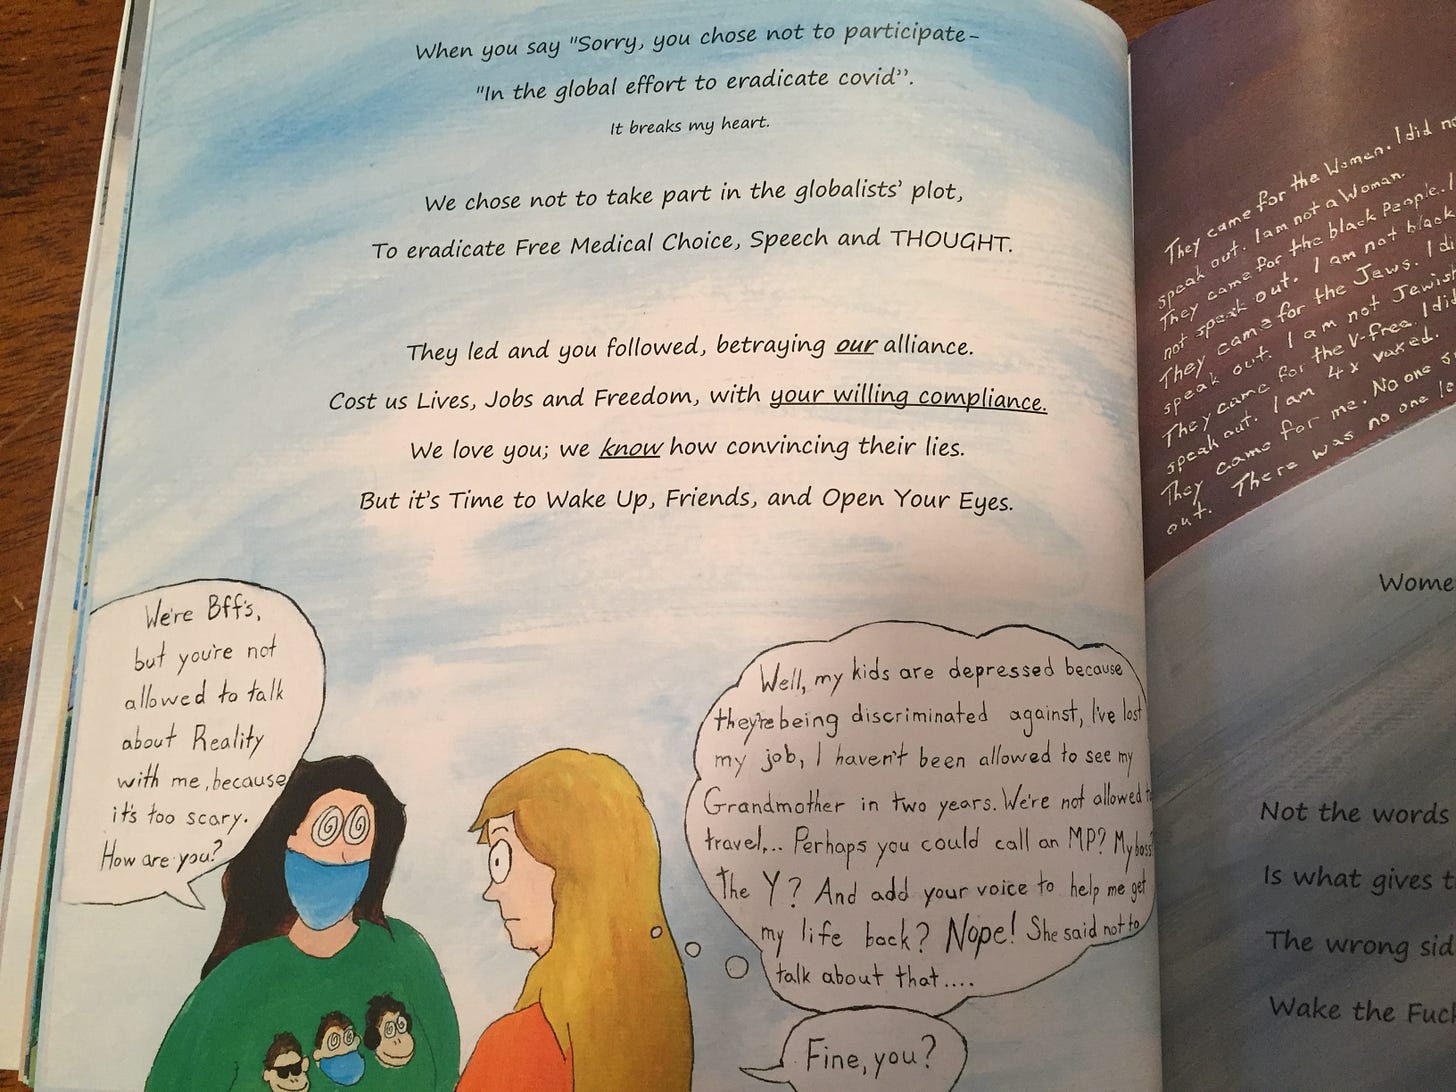 When you say "Sorry, you chose not to participate-
"In the global effort to eradicate covid”.
It breaks my heart.
We chose not to take part in the globalists’ plot,
To eradicate Free Medical Choice, Speech and THOUGHT.
They led and you followed, betraying our alliance.
Cost us Lives, Jobs and Freedom, with your willing compliance.
We love you; we know how convincing their lies.
But it’s Time to Wake Up, Friends, and Open Your Eyes.
We're Bff's,
but you're not
allowed to talk
about Reality
with me, because
it's too scary.
How are you?
Well, my kids are depressed because
they're being discriminated against, I've lost
my job, I haven't been allowed to see my
Grandmother in two years. We're not allowed
travel,... Perhaps you could call an MP? My boss?
The Y? And add your voice to help me get
my life back? Nope! She said not to
talk about that....
Fine, you?
They came for the Women. I did
speak out. I am not a Woman.
They came for the black People. I
not speak out. I am not black
They came for the Jews. I
speak out. I am not Jewish
They came for the V-free. I did
speak out. I am 4x vaxed.
They came for me. No one
out. There was no one
Women
Not the words
Is what gives
The wrong
Wake the